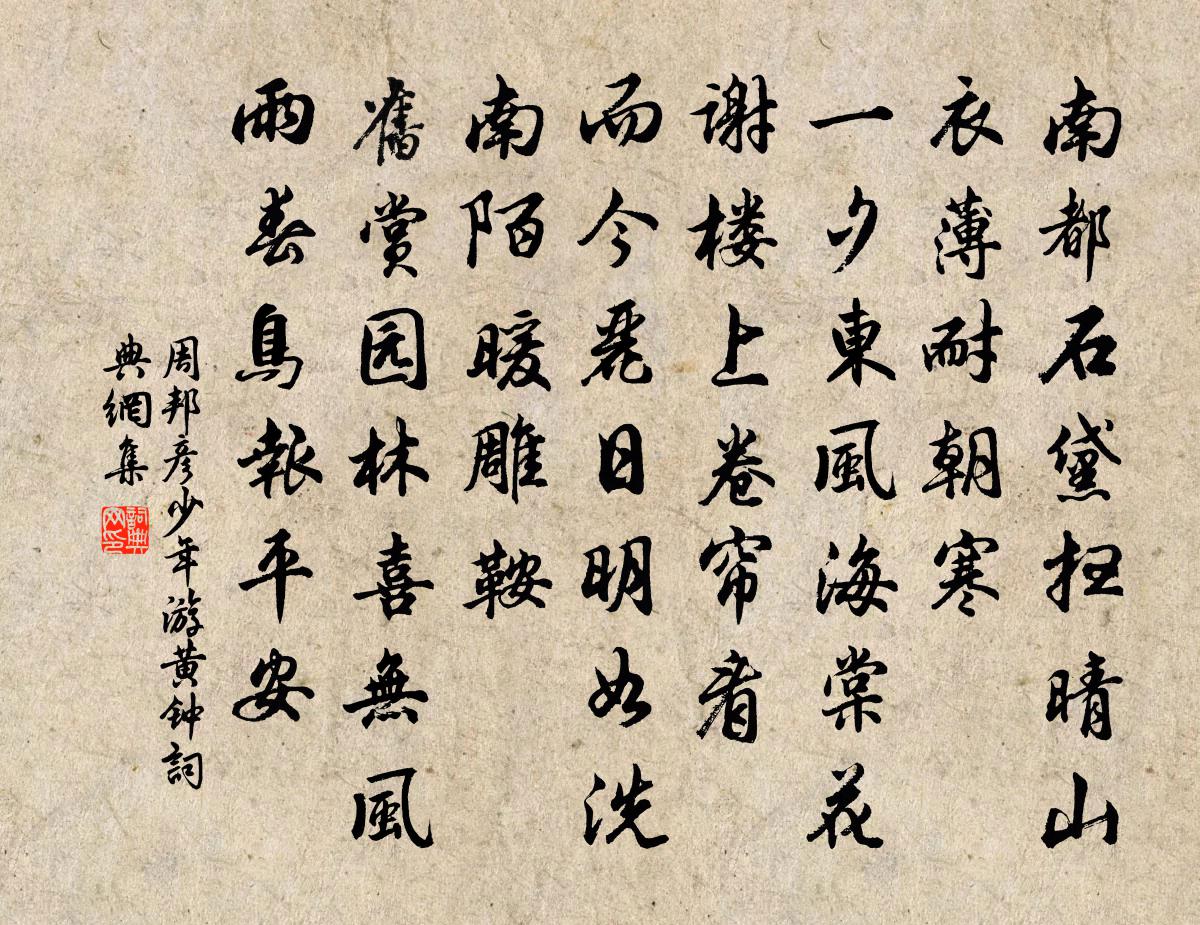 南都石黛扫晴山
衣薄耐朝寒
一夕東風海棠花
谢楼上卷帘看
而今麗日明如洗
南陌暖雕鞍
舊赏园林喜無風
雨春鳥報平安
周邦彦少年游黄钟詞
典網集
詞典网印